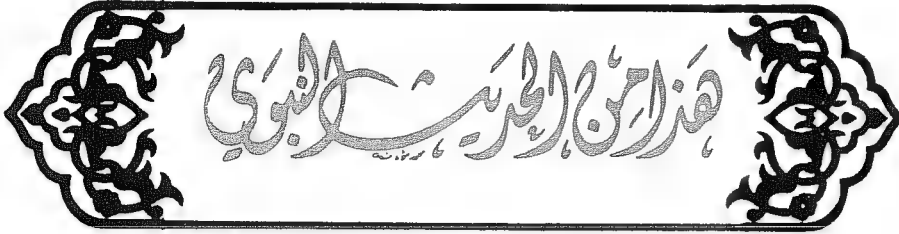 هَذَا مِنَ الحَدِيثِ النَّبَوِيّ